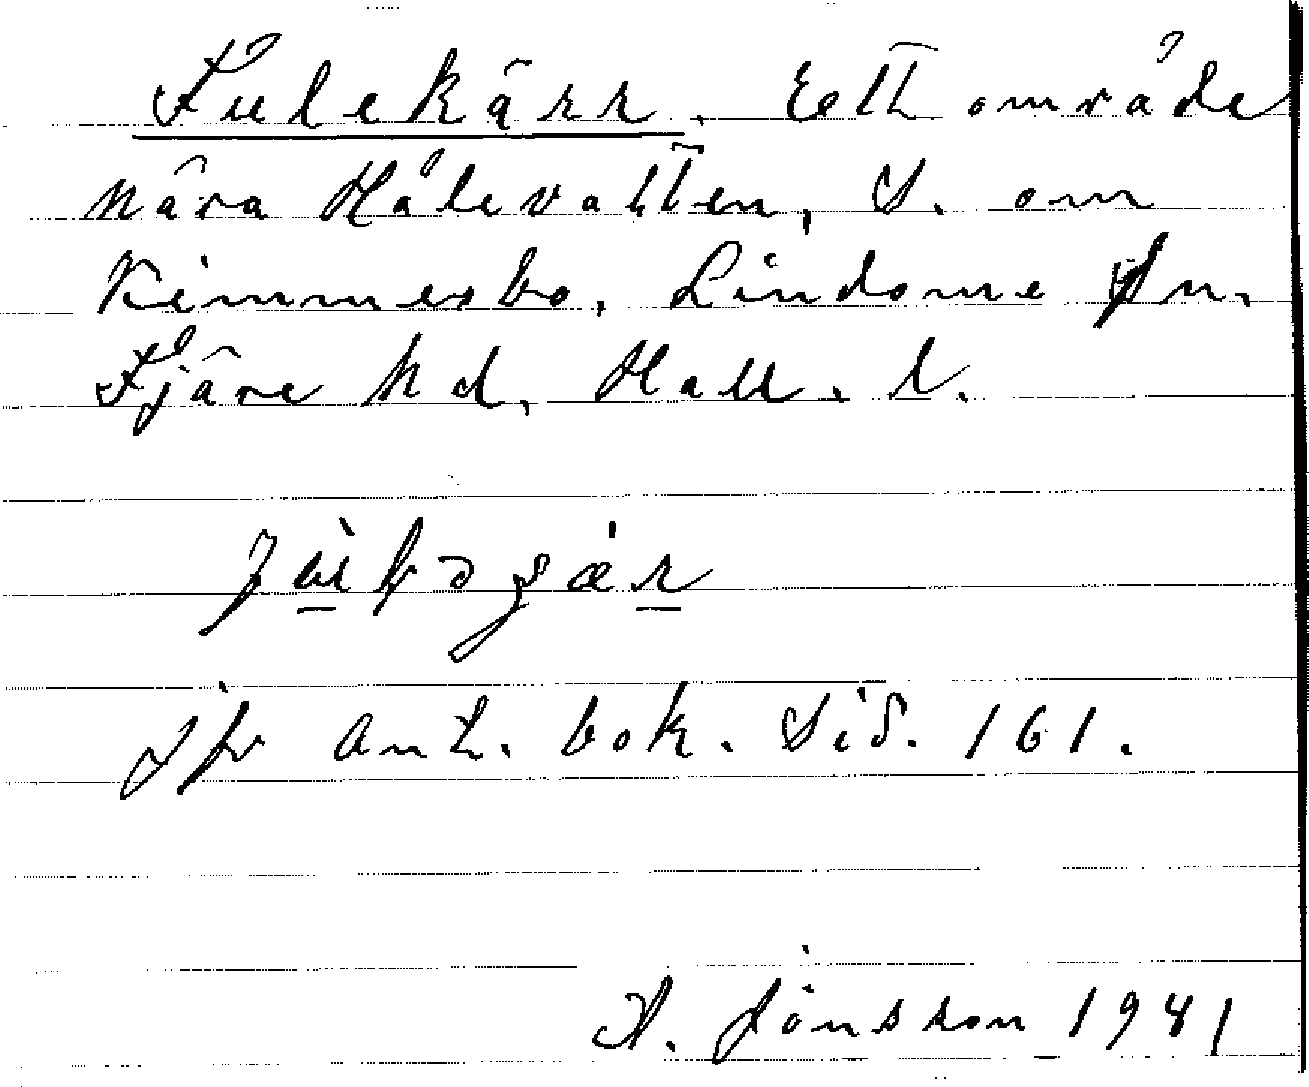 Fulekärr. Ett område
nära Hålevatten, S. om
Kimmersbo, Lindome sn,
Fjäre hd, Hall. l.
Jfr ant. bok. Sid. 161.
H. Jönsson 1941